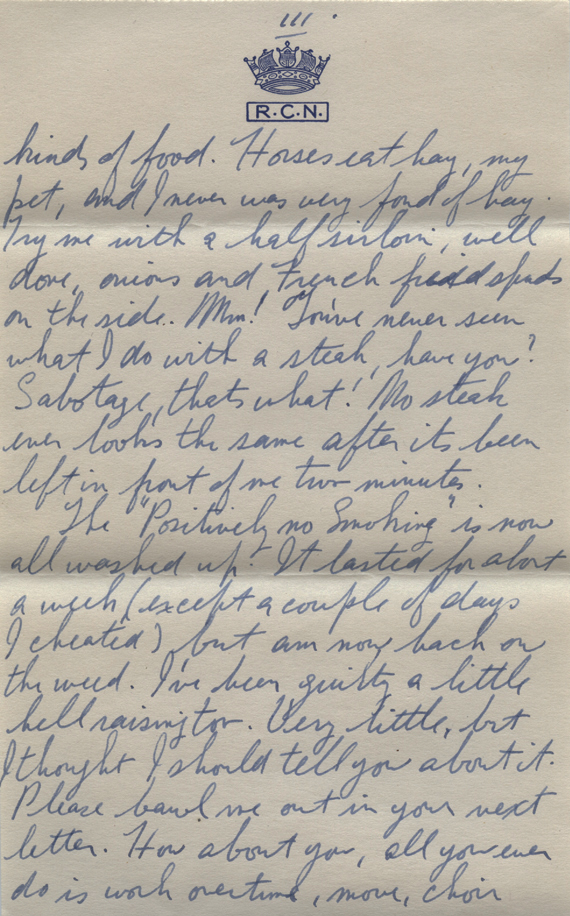 III.
R.C.N.
kinds of food. Horses eat hay, my
pet, and I never was very fond of hay.
Try me with a half sirloin, well
done, onions and French fried spuds
on the side. Mm! You've never seen
what I do with a steak, have you?
Sabotage, thats what! No steak
ever looks the same after its been
left in front of me two minutes.
The "Positively no Smoking" is now
all washed up. It lasted for about
a week (except a couple of days
I cheated) but am now back on
the weed. I've been guilty a little
hell raising too. Very little, but
I thought I should tell you about it.
Please bawl me out in your next
letter. How about you, all you ever
do is work overtime, movie, choir